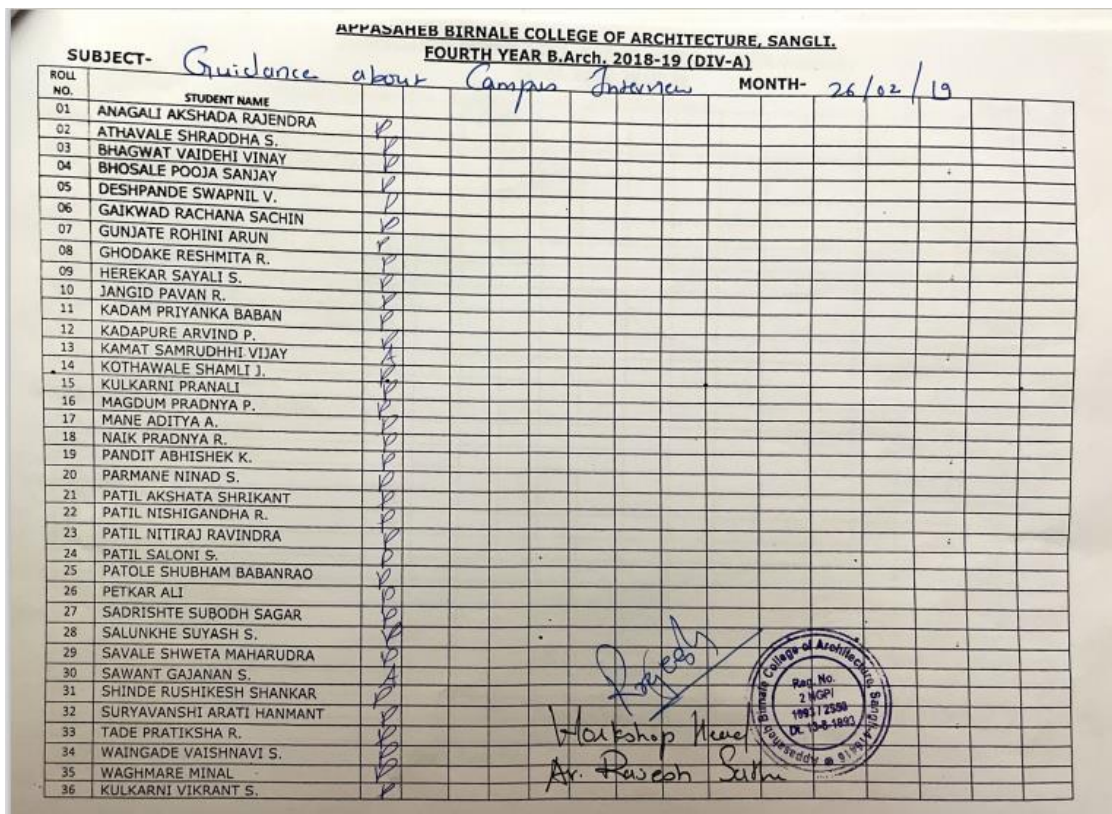 APPASAHEB BIRNALE COLLEGE OF ARCHITECTURE, SANGLI.
FOURTH YEAR B.Arch. 2018-19 (DIV-A)
SUBJECT- Guidance about Campus Interview MONTH- 26/02/19
ROLL NO. STUDENT NAME
01 ANAGALI AKSHADA RAJENDRA P
02 ATHAVALE SHRADDHA S. P
03 BHAGWAT VAIDEHI VINAY P
04 BHOSALE POOJA SANJAY P
05 DESHPANDE SWAPNIL V. P
06 GAIKWAD RACHANA SACHIN P
07 GUNJATE ROHINI ARUN P
08 GHODAKE RESHMITA R. P
09 HEREKAR SAYALI S. P
10 JANGID PAVAN R. P
11 KADAM PRIYANKA BABAN P
12 KADAPURE ARVIND P. P
13 KAMAT SAMRUDHHI VIJAY A
14 KOTHAWALE SHAMLI J. P
15 KULKARNI PRANALI P
16 MAGDUM PRADNYA P. P
17 MANE ADITYA A. P
18 NAIK PRADNYA R. P
19 PANDIT ABHISHEK K. P
20 PARMANE NINAD S. P
21 PATIL AKSHATA SHRIKANT P
22 PATIL NISHIGANDHA R. P
23 PATIL NITIRAJ RAVINDRA P
24 PATIL SALONI S. P
25 PATOLE SHUBHAM BABANRAO P
26 PETKAR ALI P
27 SADRISHTE SUBODH SAGAR P
28 SALUNKHE SUYASH S. P
29 SAVALE SHWETA MAHARUDRA P
30 SAWANT GAJANAN S. A
31 SHINDE RUSHIKESH SHANKAR P
32 SURYAVANSHI ARATI HANMANT P
33 TADE PRATIKSHA R. P
34 WAINGADE VAISHNAVI S. P
35 WAGHMARE MINAL P
36 KULKARNI VIKRANT S. P
Rajesh
Workshop Head
Ar. Rajesh
Appasaheb Birnale College of Architecture, Sangli-416416
Reg. No.
2 NGP/
1893 / 2558
Dt. 13-8-1893